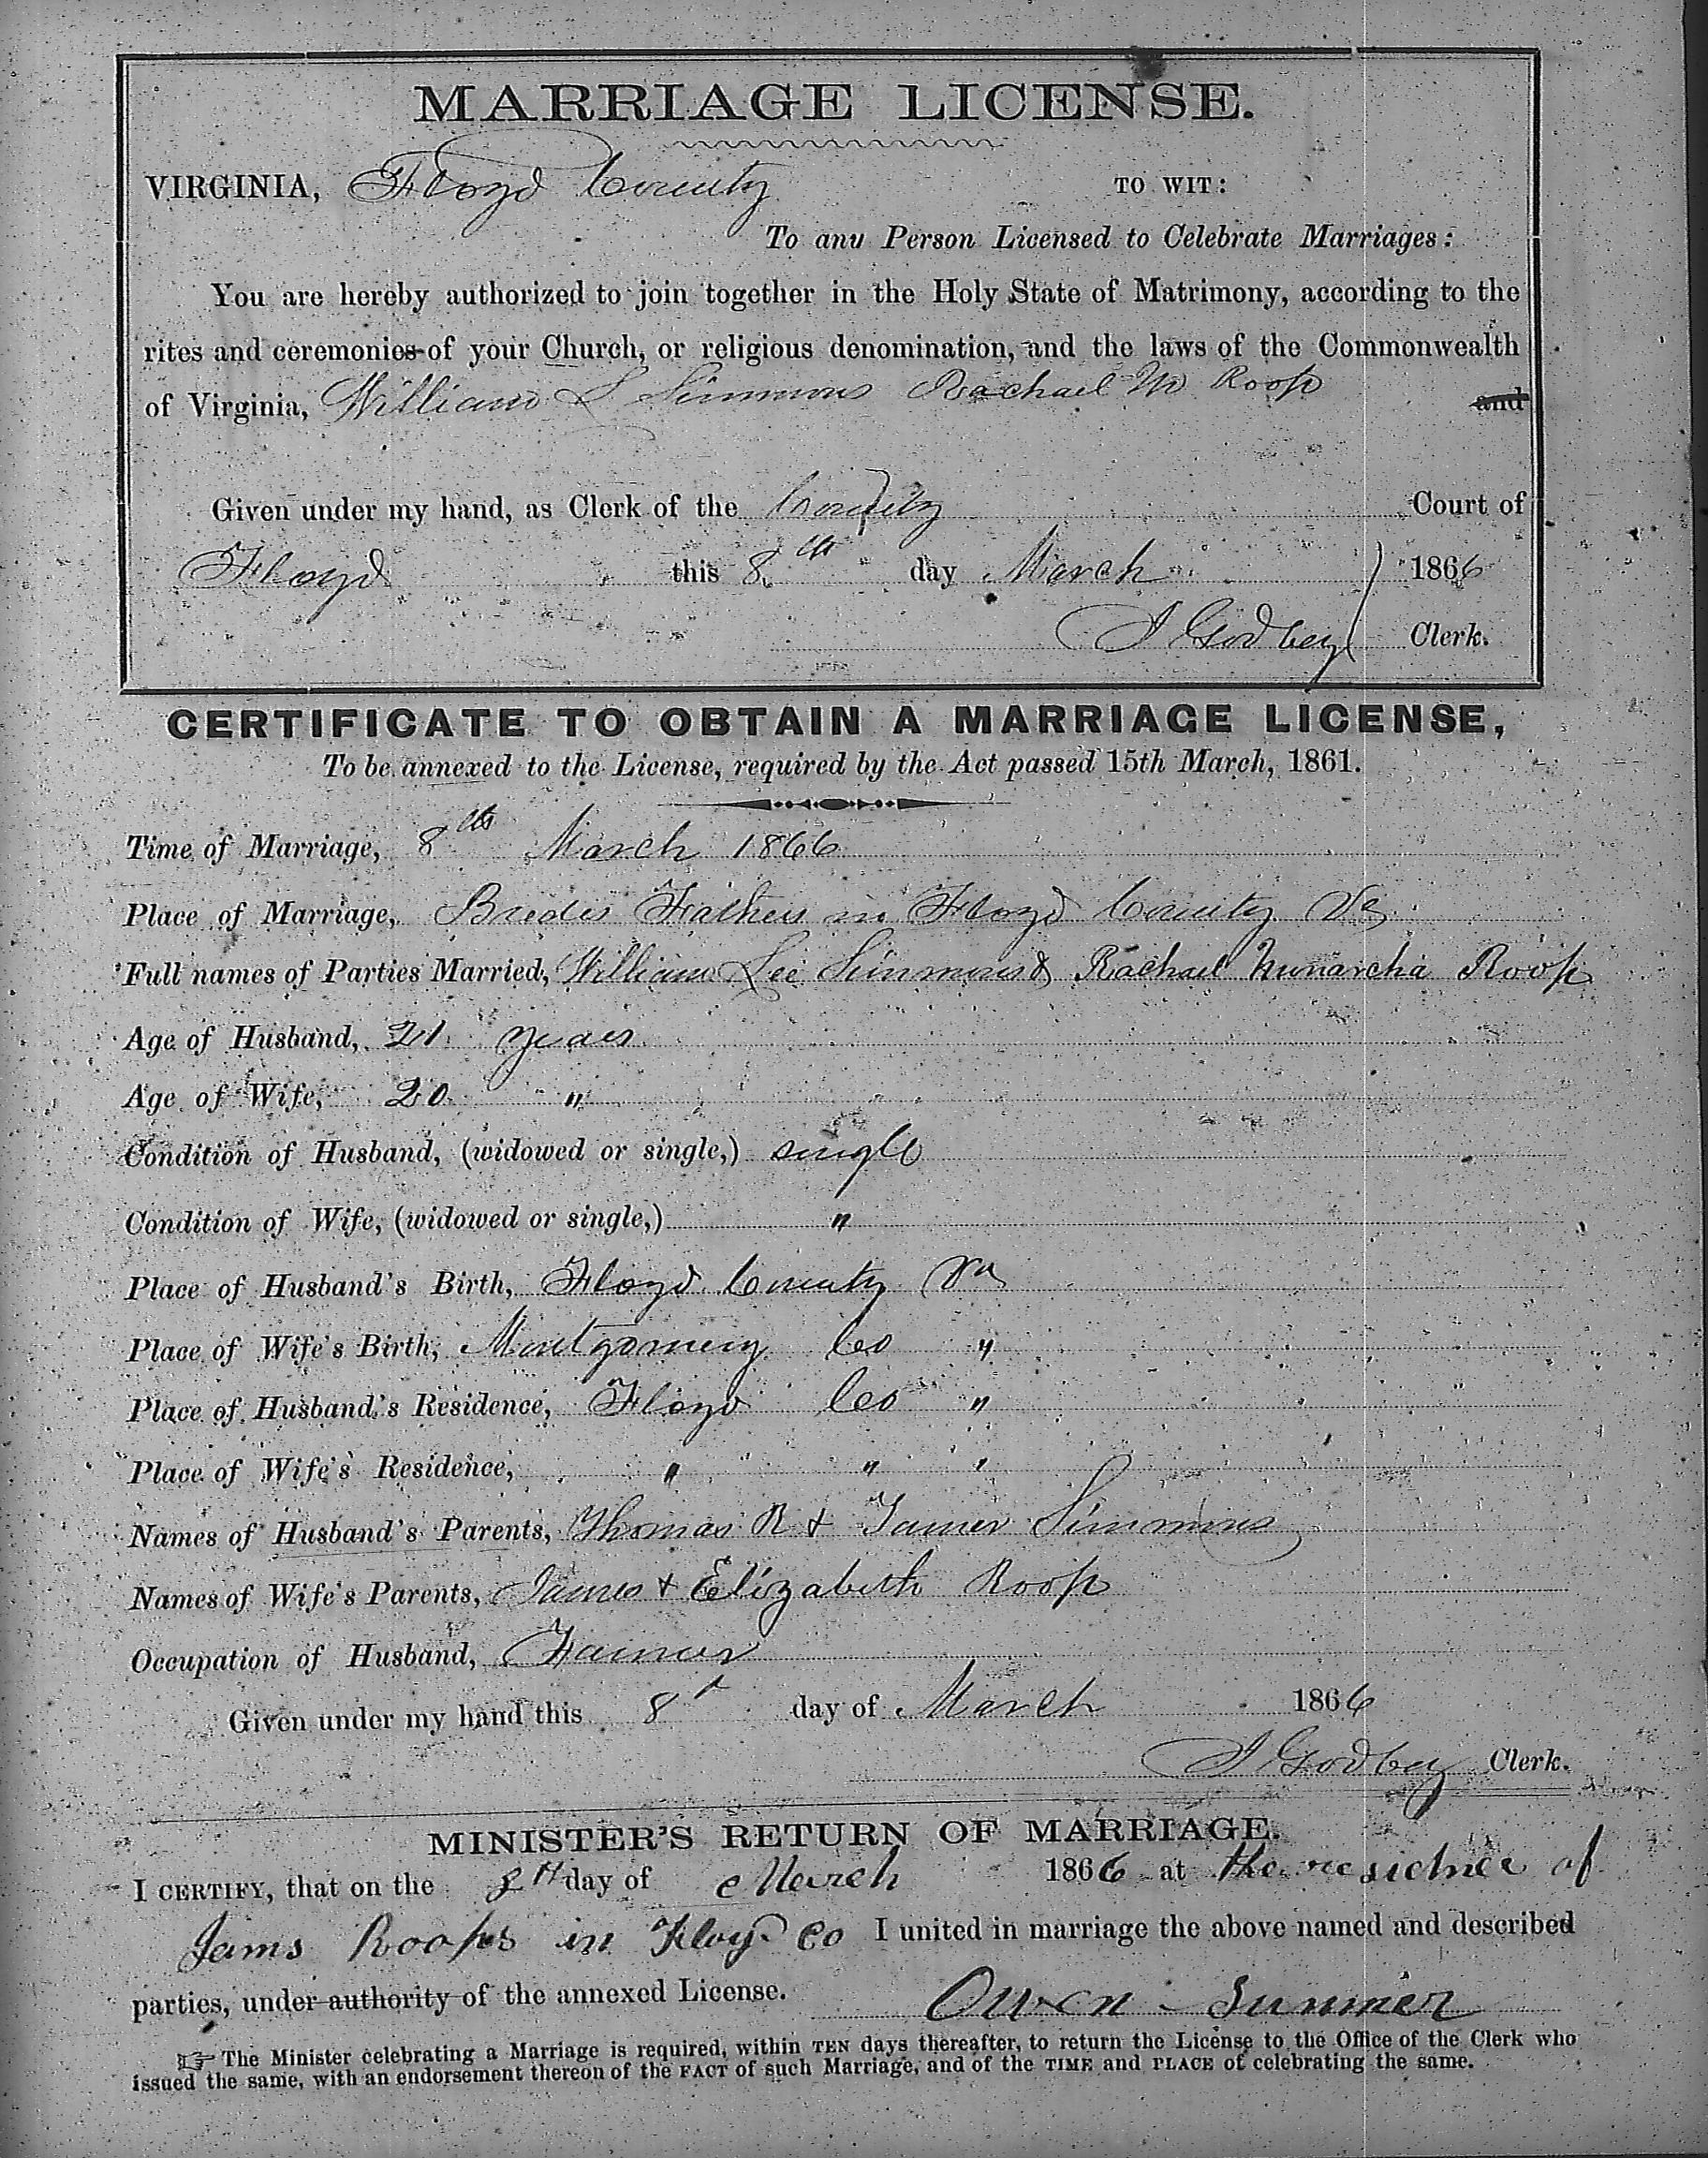 MARRIAGE LICENSE.
VIRGINIA, Floyd County TO WIT:
To any Person Licensed to Celebrate Marriages:
You are hereby authorized to join together in the Holy State of Matrimony, according to the
rites and ceremonies of your Church, or religious denomination, and the laws of the Commonwealth
of Virginia, William L Simmons Rachael M Roop and
Given under my hand, as Clerk of the County Court of
Floyd this 8th day March 1866
I Godbey Clerk.
CERTIFICATE TO OBTAIN A MARRIAGE LICENSE,
To be annexed to the License, required by the Act passed 15th March, 1861.
Time of Marriage, 8th March 1866
Place of Marriage, Brides Fathers in Floyd County Va
Full names of Parties Married, William Lee Simmons & Rachael Munarcha Roop
Age of Husband, 21 years
Age of Wife, 20 "
Condition of Husband, (widowed or single,) single
Condition of Wife, (widowed or single,) "
Place of Husband's Birth, Floyd County Va
Place of Wife's Birth, Montgomery Co "
Place of Husband's Residence, Floyd Co "
Place of Wife's Residence, " " "
Names of Husband's Parents, Thomas R & Tamer Simmons
Names of Wife's Parents, James & Elizabeth Roop
Occupation of Husband, Farmer
Given under my hand this 8th day of March 1866
I Godbey Clerk.
MINISTER'S RETURN OF MARRIAGE.
I CERTIFY, that on the 8th day of March 1866 at the residence of
Jams Roops in Floyd Co I united in marriage the above named and described
parties, under authority of the annexed License. Owen Sumner
☞ The Minister celebrating a Marriage is required, within TEN days thereafter, to return the License to the Office of the Clerk who
issued the same, with an endorsement thereon of the FACT of such Marriage, and of the TIME and PLACE of celebrating the same.